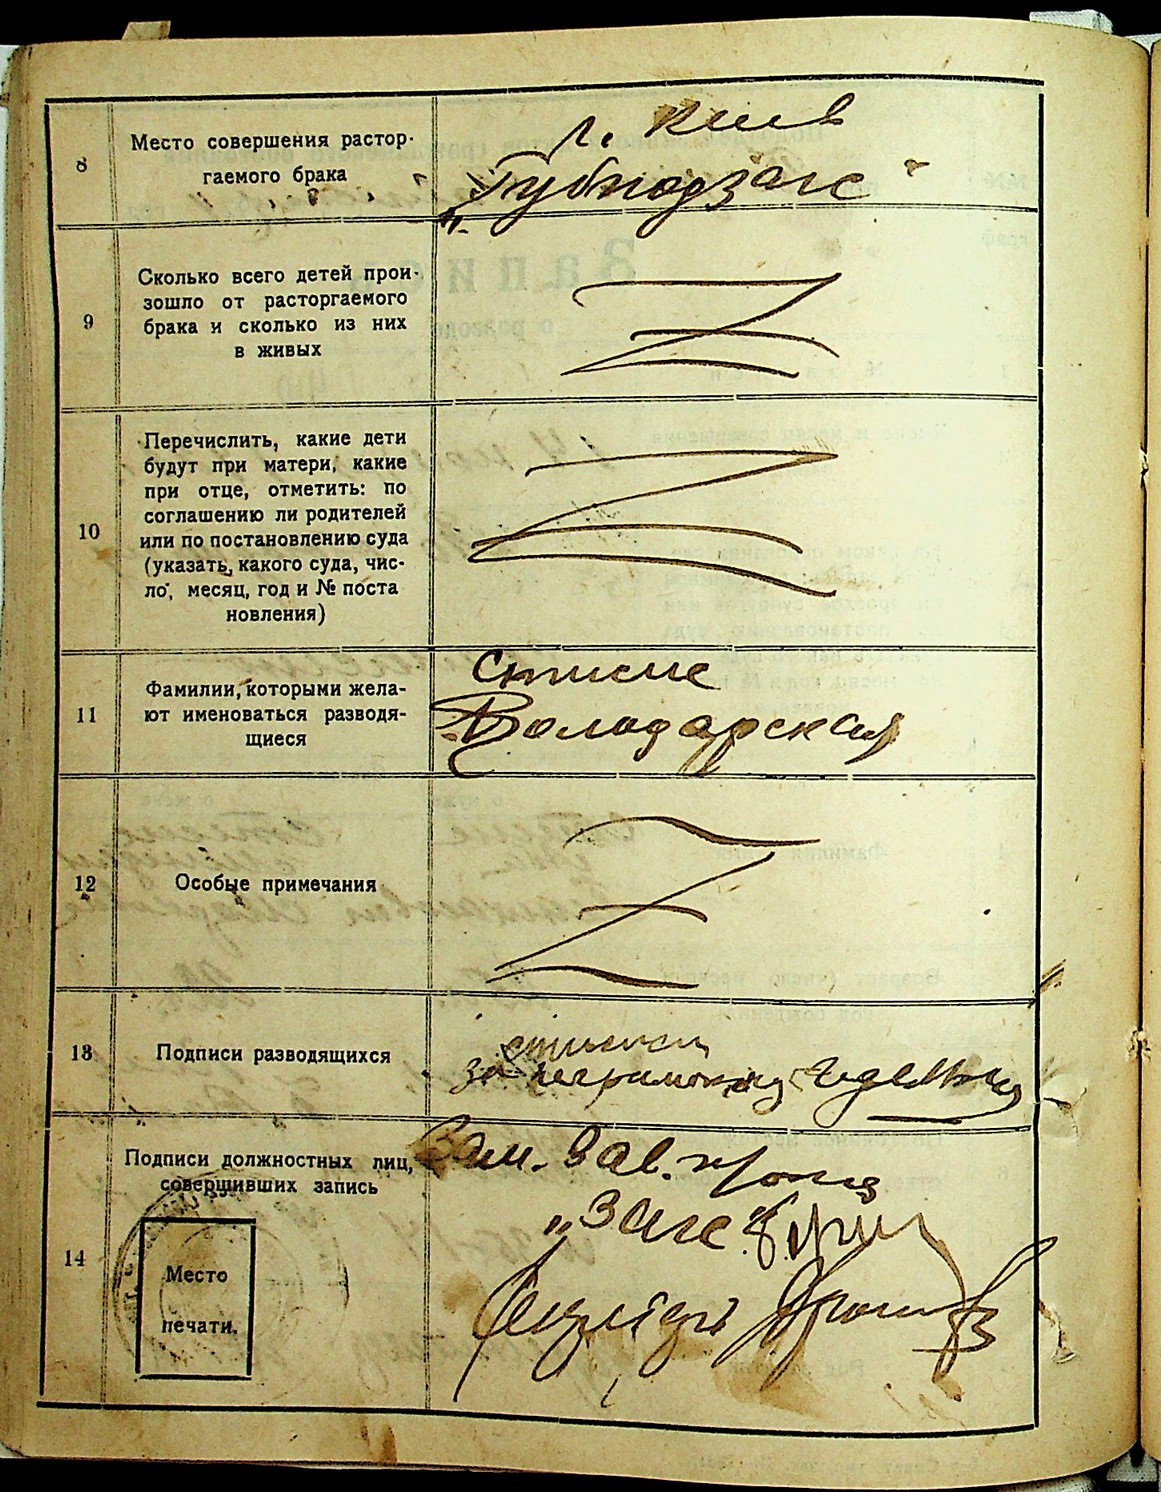 8
Место совершения растор-
гаемого брака
г. Киев
"Губподзагс"
9
Сколько всего детей прои-
зошло от расторгаемого
брака и сколько из них
в живых
10
Перечислить, какие дети
будут при матери, какие
при отце, отметить: по
соглашению ли родителей
или по постановлению суда
(указать, какого суда, чис-
ло, месяц, год и № поста
новления)
11
Фамилии, которыми жела-
ют именоваться разводя-
щиеся
Володарская
12
Особые примечания
13
Подписи разводящихся
за неграмотну
14
Подписи должностных лиц,
совершивших запись
Место
печати.
Зам. Зав.
"Загс"